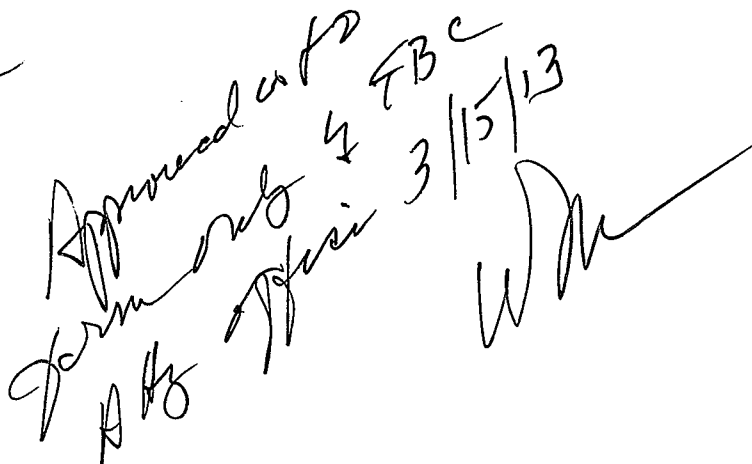 Approved as to
form only by TBC
Atty Office 3/15/13